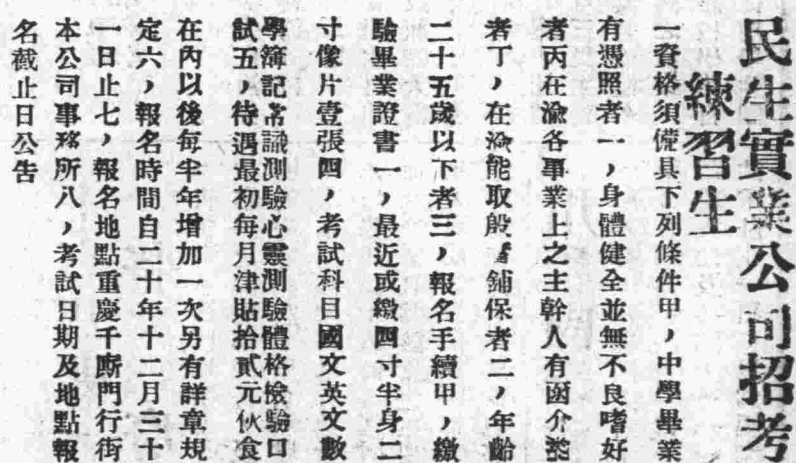 民生實業公司招考
練習生
一資格須備具下列條件甲，中學畢業
有憑照者一，身體健全並無不良嗜好
者丙在渝各事業上之主幹人有函介紹
者丁，在渝能取殷鋪保者二，年齡
二十五歲以下者三，報名手續甲，繳
驗畢業證書一，最近或繳四寸半身二
寸像片壹張四，考試科目國文英文數
學簿記常識測驗心靈測驗體格檢驗口
試五，待遇最初每月津貼拾貳元伙食
在內以後每半年增加一次另有詳章規
定六，報名時間自二十年十二月三十
一日止七，報名地點重慶千廝門行街
本公司事務所八，考試日期及地點報
名截止日公告